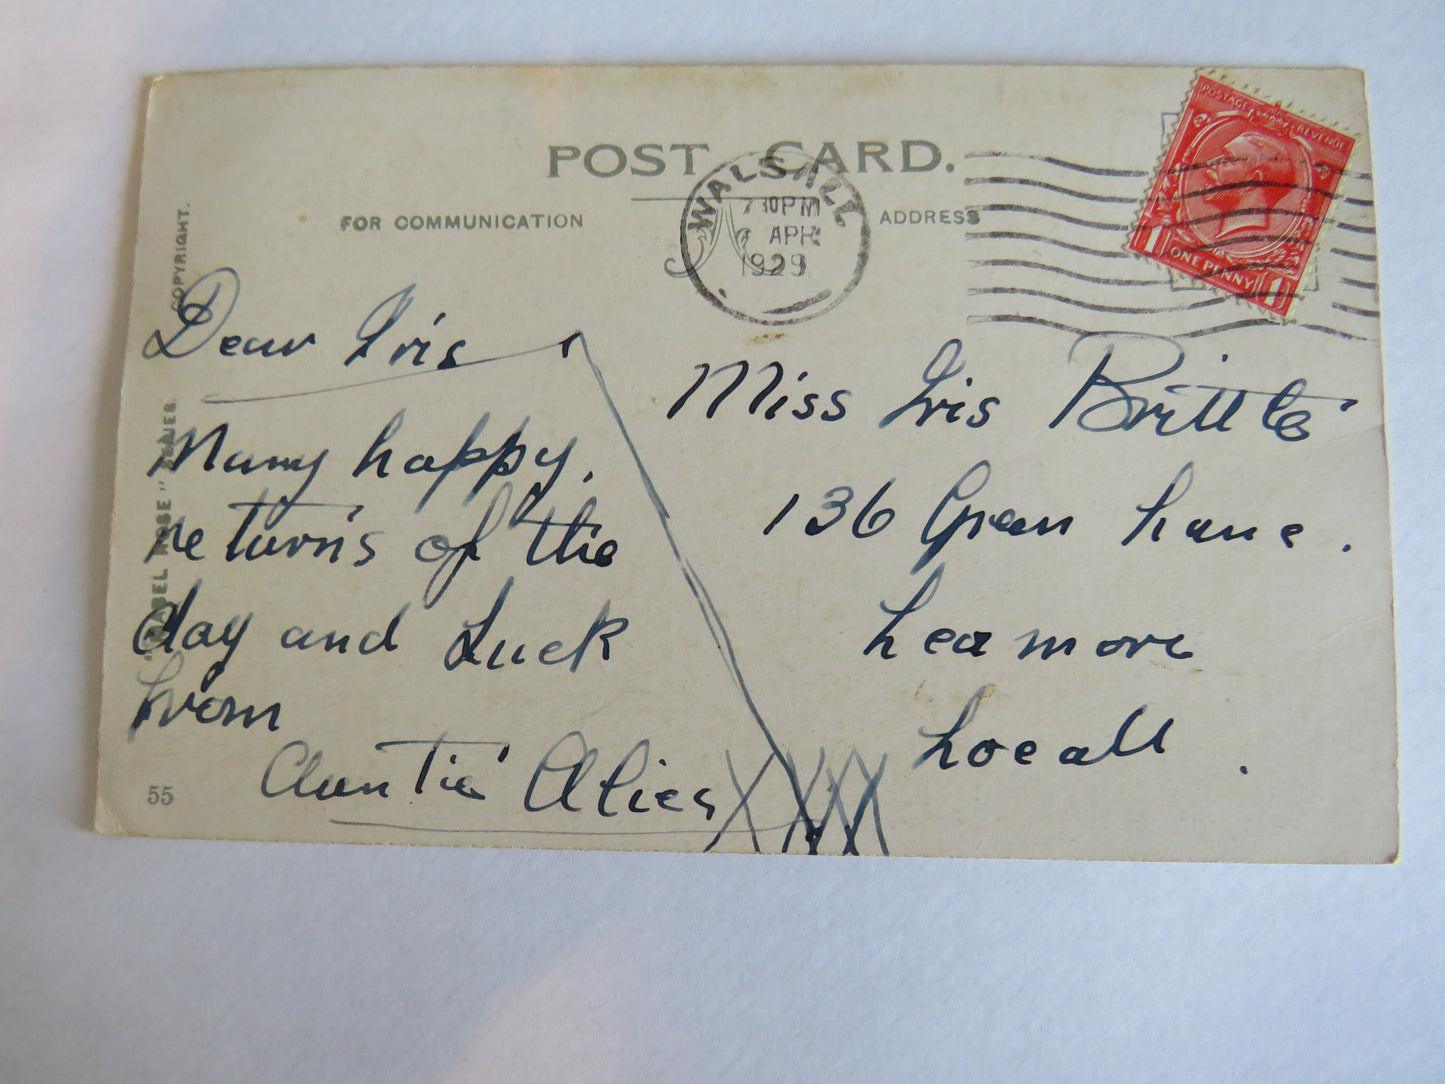 POST CARD.
FOR COMMUNICATION
ADDRESS
WALSALL
7 30 PM
6 APR
1929
POSTAGE REVENUE
1 ONE PENNY 1
COPYRIGHT.
"MABEL ROSE" SERIES.
Dear Iris
Many happy
returns of the
day and Luck
From
Auntie Alice
XXXX
Miss Iris Brittle
136 Green Lane.
Leamore
Locall.
55